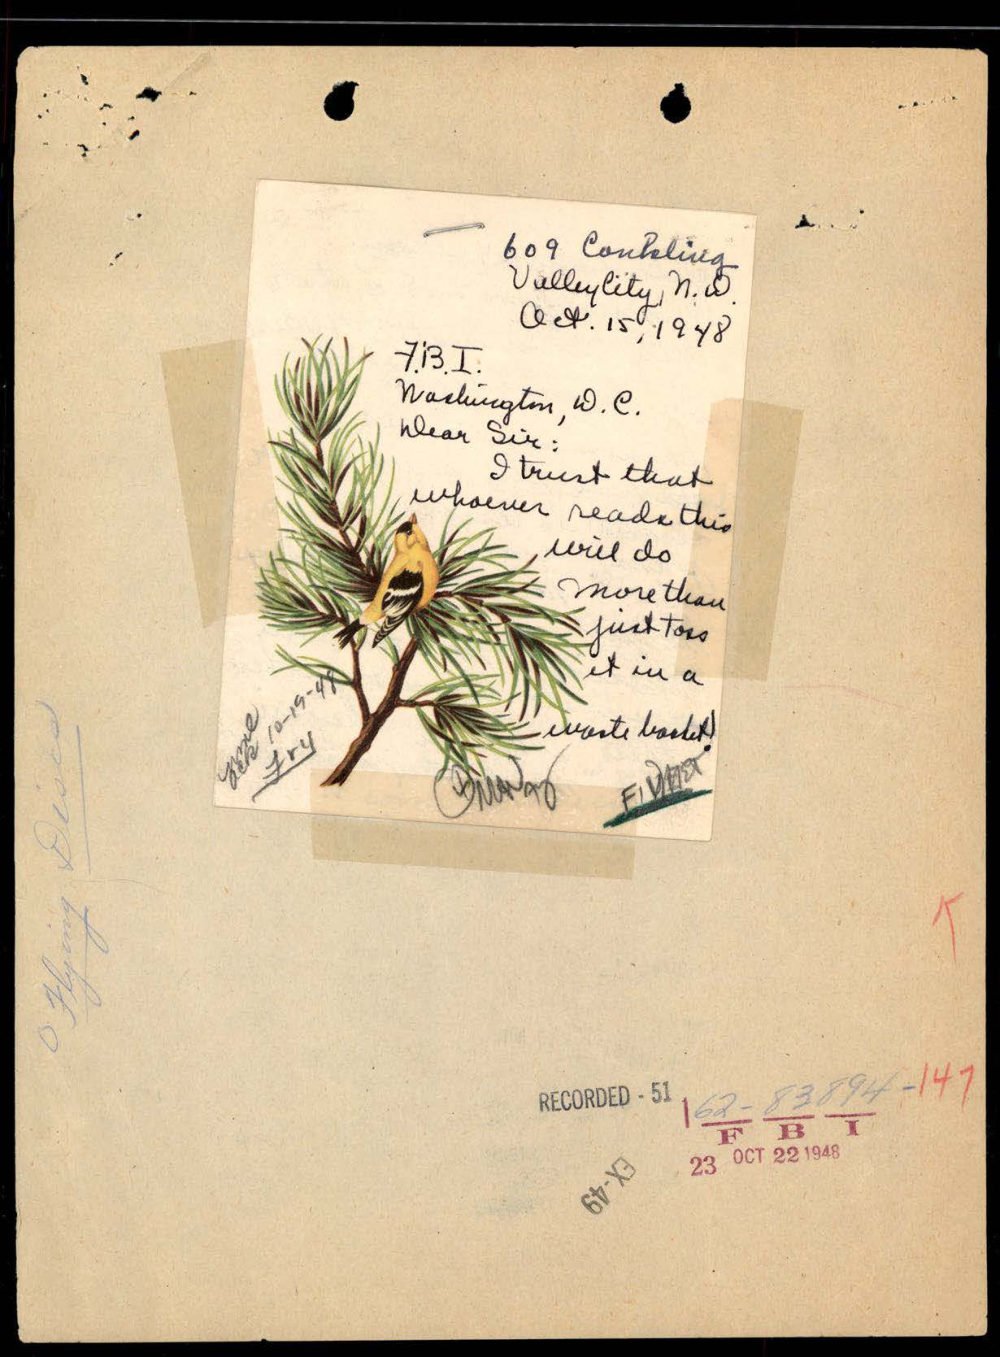 609 Conkling
Valley City, N. D.
Oct. 15, 1948
F.B.I.
Washington, D. C.
Dear Sir:
I trust that
whoever reads this
will do
more than
just toss
it in a
waste basket!
10-19-48
Flying Discs
RECORDED - 51
162-83894-147
F B I
23 OCT 22 1948
EX-49